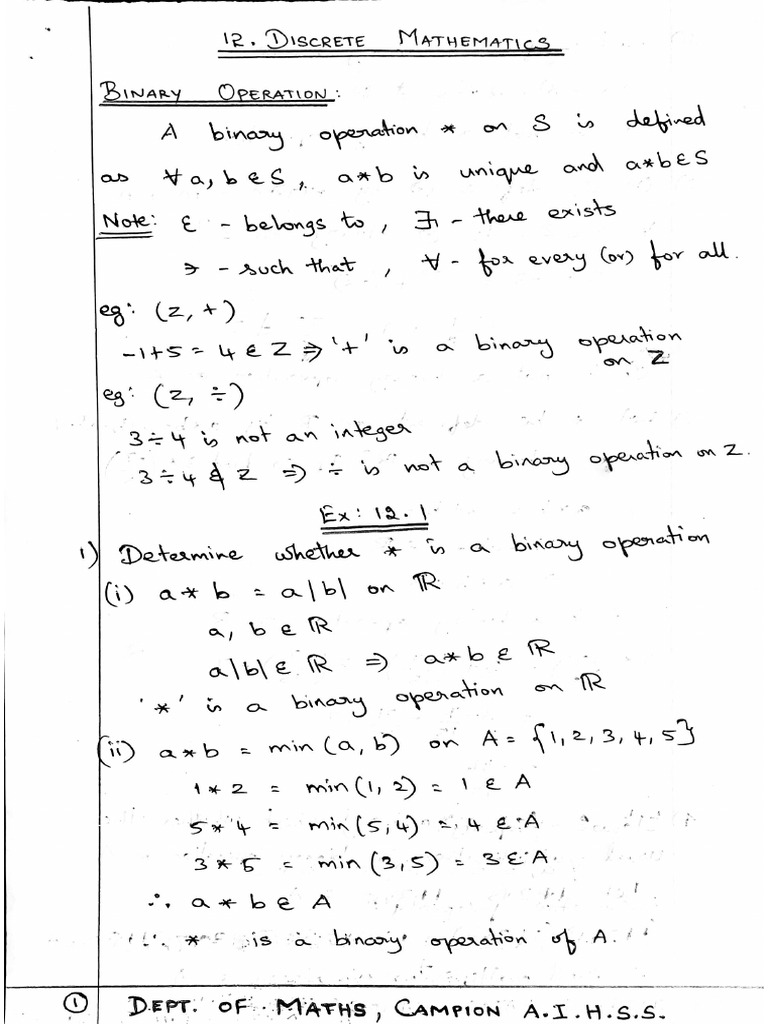 12. DISCRETE MATHEMATICS
BINARY OPERATION:
A binary operation * on S is defined
as ∀ a, b ∈ S, a*b is unique and a*b ∈ S
Note: ∈ - belongs to, ∃ - there exists
∋ - such that, ∀ - for every (or) for all.
eg: (Z, +)
-1+5 = 4 ∈ Z ⇒ '+' is a binary operation
on Z
eg: (Z, ÷)
3÷4 is not an integer
3÷4 ∉ Z ⇒ ÷ is not a binary operation on Z.
Ex: 12.1
1) Determine whether * is a binary operation
(i) a * b = a|b| on ℝ
a, b ∈ ℝ
a|b| ∈ ℝ ⇒ a*b ∈ ℝ
'*' is a binary operation on ℝ
(ii) a*b = min (a, b) on A = {1, 2, 3, 4, 5}
1 * 2 = min (1, 2) = 1 ∈ A
5 * 4 = min (5, 4) = 4 ∈ A
3 * 5 = min (3, 5) = 3 ∈ A
∴ a * b ∈ A
∴ * is a binary operation of A.
① DEPT. OF MATHS, CAMPION A.I.H.S.S.